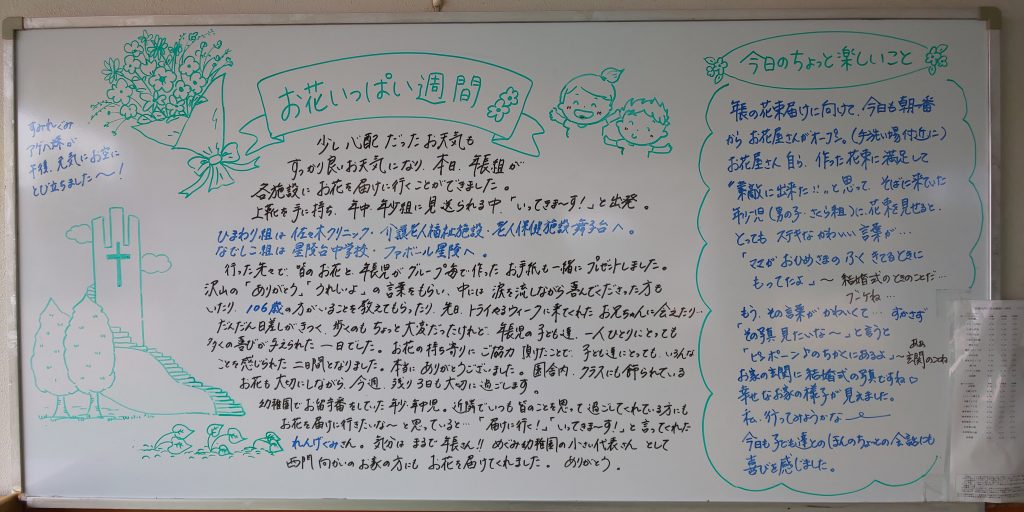 お花いっぱい週間
すみれぐみ
アゲハ蝶が
午後、元気にお空に
とび立ちました〜！
少し心配だったお天気も
すっかり良いお天気になり、本日、年長組が
各施設にお花を届けに行くことができました。
上靴を手に持ち、年中、年少組に見送られる中、「いってきま〜す！」と出発。
ひまわり組は佐々木クリニック・介護老人福祉施設・老人保健施設舞子台へ。
なでしこ組は星陵台中学校・ファボール星陵へ。
行った先々で、皆のお花と、年長児がグループ毎で作ったお手紙も一緒にプレゼントしました。
沢山の「ありがとう」「うれしいよ」の言葉をもらい、中には涙を流しながら喜んでくださった方も
いたり、106歳の方がいることを教えてもらったり、先日、トライやるウィークに来てくれたお兄ちゃんに会えたり…
だんだん日差しがきつく、歩くのもちょっと大変だったけれど、年長児の子ども達、一人ひとりにとっても
多くの喜びが与えられた一日でした。お花の持ち寄りにご協力頂けたことで、子ども達にとっても、いろんな
ことを感じられた二日間となりました。本当にありがとうございました。園舎内、クラスにも飾られている
お花も大切にしながら、今週、残り3日も大切に過ごします。
幼稚園でお留守番をしていた年少・年中児。近隣でいつも皆のことを思って過ごしてくれている方にも
お花を届けに行きたいな〜と思っていると…「届けに行く！」「いってきま〜す！」と言ってくれた
れんげぐみさん。気分はまるで年長さん!! めぐみ幼稚園の小さい代表さんとして
西門向かいのお家の方にもお花を届けてくれました。ありがとう。
今日のちょっと楽しいこと
年長の花束届けに向けて、今日も朝一番
からお花屋さんがオープン。(手洗い場付近に)
お花屋さん自ら、作った花束に満足して
"素敵に出来た!!"と思って、そばに来ていた
年少児(男の子・さくら組)に、花束を見せると、
とってもステキなかわいい言葉が…
「ママが おひめさまの ふく きてるときに
もってたよ」〜結婚式のときのことだ…
ブーケね…
もう、その言葉がかわいくて… すかさず
「その写真見たいな〜」と言うと
「ピンポーン♪のちかくにあるよ」〜ああ
玄関のことね
お家の玄関に結婚式の写真ですね♡
幸せなお家の様子が見えました。
私、行ってみようかな〜
今日も子ども達とのほんのちょっとの会話にも
喜びを感じました。